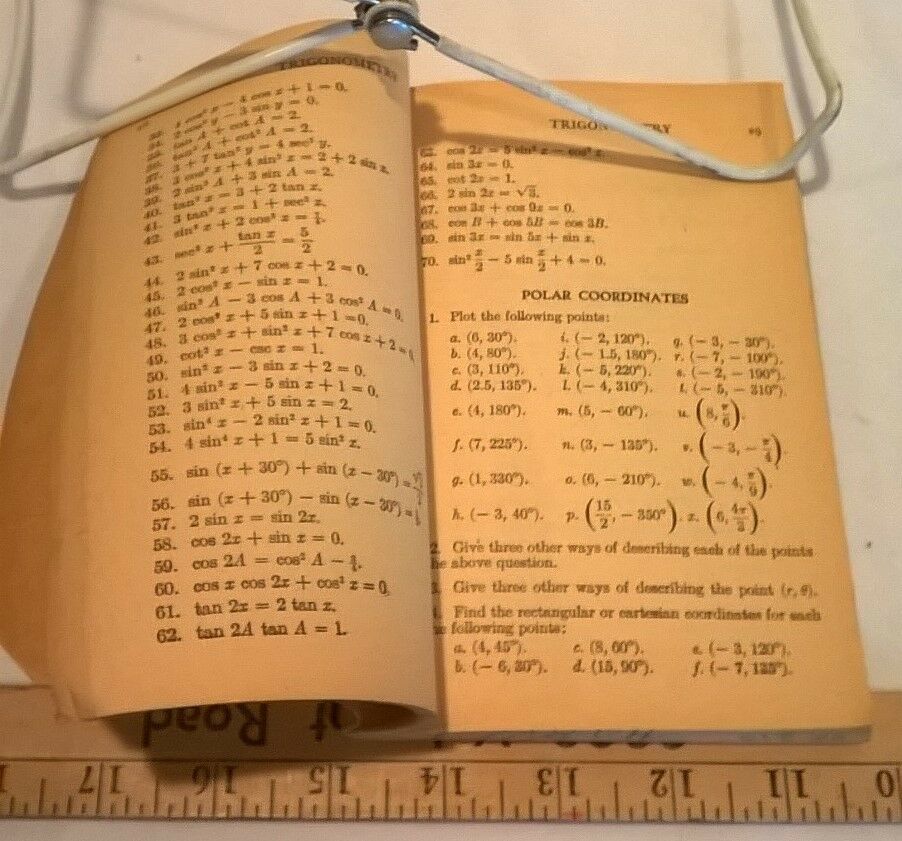 TRIGONOMETRY
cos x + 1 = 0.
3 sin y = 0.
tan A + cot A = 2.
tan² A + cot² A = 2.
3 + 7 tan² y = 4 sec² y.
37. 3 cos² x + 4 sin² x = 2 + 2 sin x.
38. 2 sin² A + 3 sin A = 2.
39. tan² x = 3 + 2 tan x.
40. 3 tan² x = 1 + sec² x.
41. sin² x + 2 cos² x =
42.
43. sec² x + tan x / 2 = 5/2
44. 2 sin² x + 7 cos x + 2 = 0.
45. 2 cos² x − sin x = 1.
46. sin² A − 3 cos A + 3 cos² A = 0.
47. 2 cos² x + 5 sin x + 1 = 0.
48. 3 cos² x + sin² x + 7 cos x + 2 = 0
49. cot² x − csc x = 1.
50. sin² x − 3 sin x + 2 = 0.
51. 4 sin² x − 5 sin x + 1 = 0.
52. 3 sin² x + 5 sin x = 2.
53. sin⁴ x − 2 sin² x + 1 = 0.
54. 4 sin⁴ x + 1 = 5 sin² x.
55. sin (x + 30°) + sin (x − 30°) =
56. sin (x + 30°) − sin (x − 30°) =
57. 2 sin x = sin 2x.
58. cos 2x + sin x = 0.
59. cos 2A = cos² A −
60. cos x cos 2x + cos² x = 0.
61. tan 2x = 2 tan x.
62. tan 2A tan A = 1.
TRIGON RY
63. cos 2x = 5 sin² x − cos² x.
64. sin 3x = 0.
65. cot 2x = 1.
66. 2 sin 2x = √3.
67. cos 3x + cos 9x = 0.
68. cos B + cos 5B = cos 3B.
69. sin 3x = sin 5x + sin x.
70. sin² x/2 − 5 sin x/2 + 4 = 0.
POLAR COORDINATES
1. Plot the following points:
a. (6, 30°). i. (− 2, 120°). q. (− 3, − 30°).
b. (4, 80°). j. (− 1.5, 180°). r. (− 7, − 100°).
c. (3, 110°). k. (− 5, 220°). s. (− 2, − 190°).
d. (2.5, 135°). l. (− 4, 310°). t. (− 5, − 310°).
e. (4, 180°). m. (5, − 60°). u. (8, π/6).
f. (7, 225°). n. (3, − 135°). v. (− 3, − π/4).
g. (1, 330°). o. (6, − 210°). w. (− 4, π/9).
h. (− 3, 40°). p. (15/2, − 350°). x. (6, 4π/3).
2. Give three other ways of describing each of the points
he above question.
3. Give three other ways of describing the point (r, θ).
4. Find the rectangular or cartesian coordinates for each
following points:
a. (4, 45°). c. (8, 60°). e. (− 3, 120°).
b. (− 6, 30°). d. (15, 90°). f. (− 7, 135°).
of Road
17 16 15 14 13 12 11 0